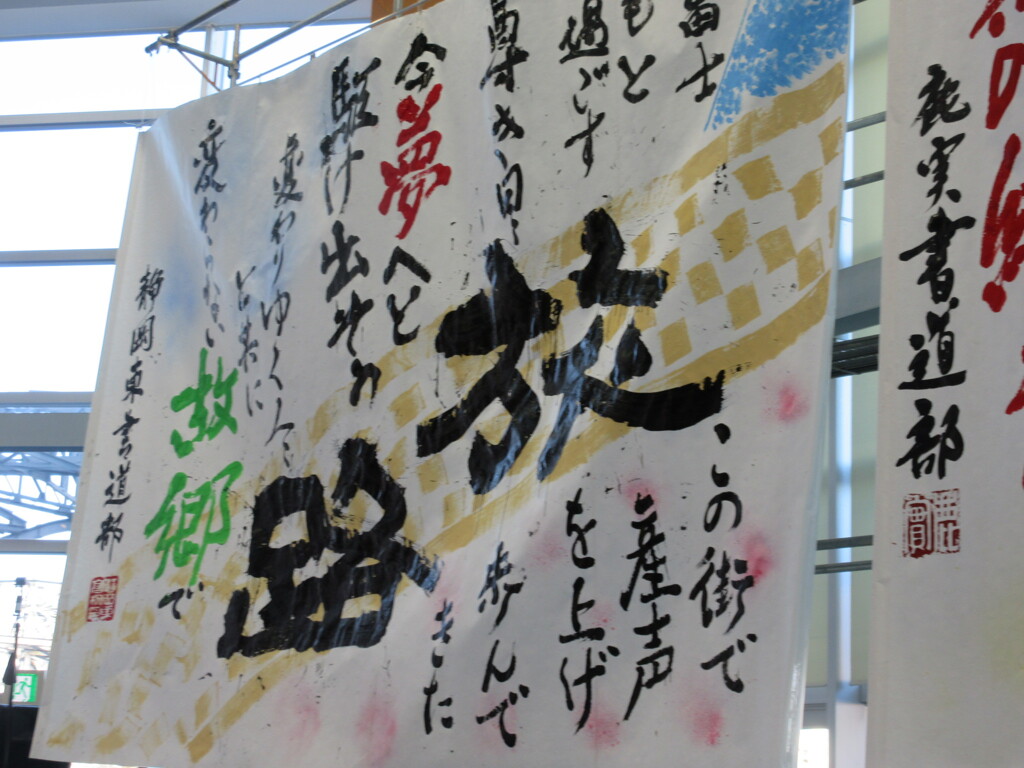 鹿実書道部
富士
もと
過ごす
尊き日々
この街で
産声
を上げ
歩んで
きた
旅路
今夢へと
駆け出
変わりゆく人々
と共に
変わらない故郷で
静岡東書道部